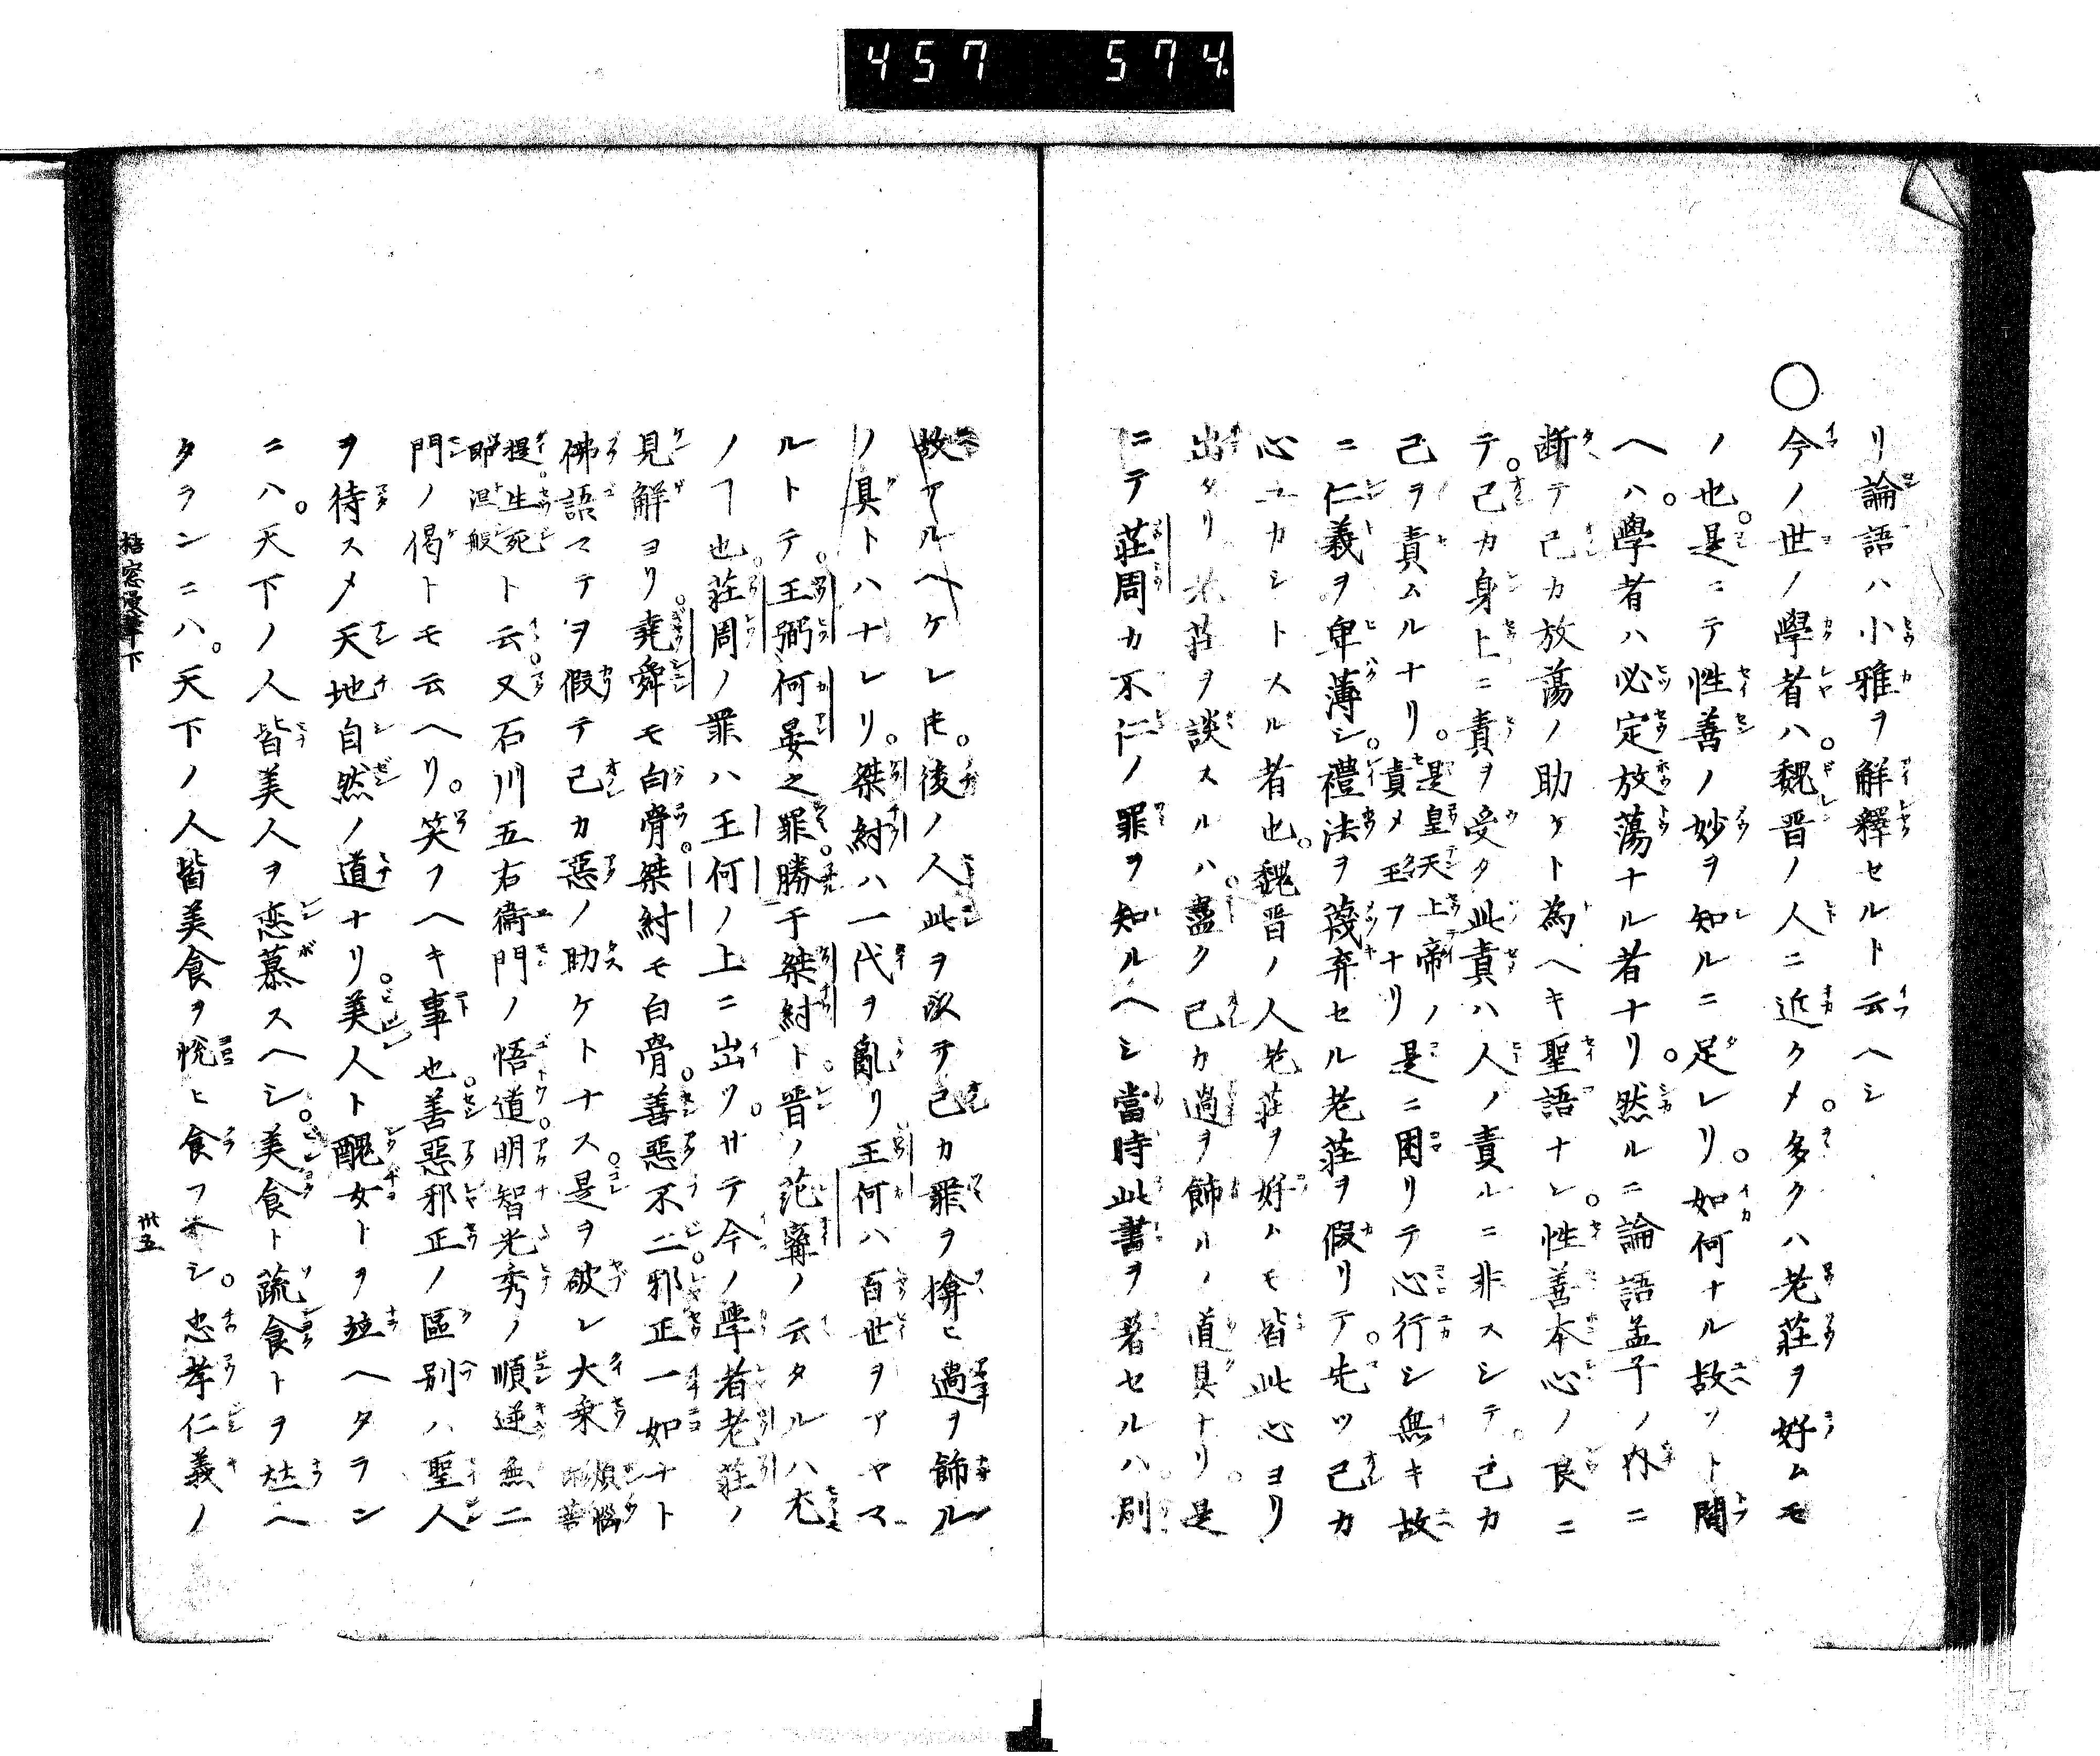 457 574.
リ論語ハ小雅ヲ解釋セルト云ヘシ
○今ノ世ノ學者ハ。魏晋ノ人ニ近クメ多クハ老莊ヲ好ムモ
ノ也。是ニテ性善ノ妙ヲ知ルニ足レリ。如何ナル故ソト問
ヘハ。學者ハ必定放蕩ナル者ナリ。然ルニ論語孟子ノ内ニ
断テ己カ放蕩ノ助ケト為ヘキ聖語ナシ。性善本心ノ良ニ
テ。己カ身上ニ責ヲ受ク此責ハ人ノ責ルニ非スシテ。己カ
己ヲ責ムルナリ。是皇天上帝ノ責メ玉フナリ是ニ困リテ心行シ無キ故
ニ仁義ヲ卑薄シ。禮法ヲ蔑弃セル老莊ヲ假リテ。先ツ己カ
心ユカシトスル者也。魏晋ノ人老莊ヲ好ムモ皆此心ヨリ
出タリ老莊ヲ談スルハ盡ク己カ過ヲ飾ルノ道具ナリ。是
ニテ莊周カ不仁ノ罪ヲ知ルヘシ當時此書ヲ著セルハ別
故アルヘケレ𪜈。後ノ人此ヲ以テ己カ罪ヲ揜ヒ過ヲ飾ル
ノ具トハナレリ。桀紂ハ一代ヲ亂リ王何ハ百世ヲアヤマ
ルトテ。王弼何晏之罪勝于桀紂ト。晋ノ范寗ノ云タルハ尤
ノヿ也。莊周ノ罪ハ王何ノ上ニ出ツ。サテ今ノ學者老莊ノ
見解ヨリ堯舜モ白骨。桀紂モ白骨。善惡不二邪正一如ナト
佛語マテヲ假テ己カ惡ノ助ケトナス是ヲ破レ大乗煩惱即菩
提。生死即涅般ト云又石川五右衞門ノ悟道明智光秀ノ順逆無二
門ノ偈トモ云ヘリ。笑フヘキ事也。善惡邪正ノ區別ハ聖人
ヲ待スメ天地自然ノ道ナリ。美人ト醜女トヲ並ヘタラン
ニハ。天下ノ人皆美人ヲ恋慕スヘシ。美食ト蔬食トヲ竝ヘ
タランニハ。天下ノ人皆美食ヲ悦ヒ食フヘシ。忠孝仁義ノ
梧窓漫筆下
卅五